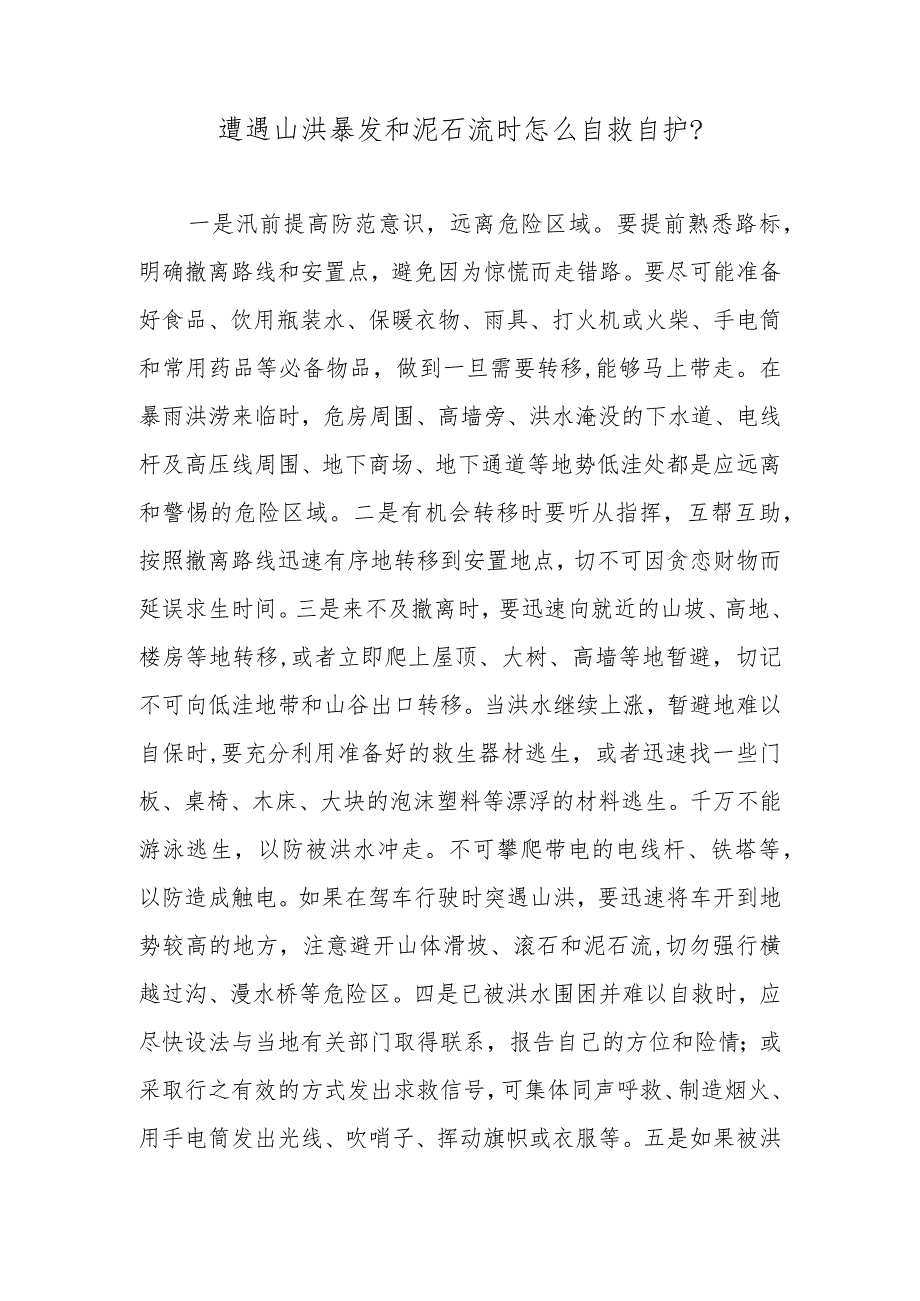 遭遇山洪暴发和泥石流时怎么自救自护?
一是汛前提高防范意识，远离危险区域。要提前熟悉路标，
明确撤离路线和安置点，避免因为惊慌而走错路。要尽可能准备
好食品、饮用瓶装水、保暖衣物、雨具、打火机或火柴、手电筒
和常用药品等必备物品，做到一旦需要转移,能够马上带走。在
暴雨洪涝来临时，危房周围、高墙旁、洪水淹没的下水道、电线
杆及高压线周围、地下商场、地下通道等地势低洼处都是应远离
和警惕的危险区域。二是有机会转移时要听从指挥，互帮互助，
按照撤离路线迅速有序地转移到安置地点，切不可因贪恋财物而
延误求生时间。三是来不及撤离时，要迅速向就近的山坡、高地、
楼房等地转移,或者立即爬上屋顶、大树、高墙等地暂避，切记
不可向低洼地带和山谷出口转移。当洪水继续上涨，暂避地难以
自保时,要充分利用准备好的救生器材逃生，或者迅速找一些门
板、桌椅、木床、大块的泡沫塑料等漂浮的材料逃生。千万不能
游泳逃生，以防被洪水冲走。不可攀爬带电的电线杆、铁塔等，
以防造成触电。如果在驾车行驶时突遇山洪，要迅速将车开到地
势较高的地方，注意避开山体滑坡、滚石和泥石流,切勿强行横
越过沟、漫水桥等危险区。四是已被洪水围困并难以自救时，应
尽快设法与当地有关部门取得联系，报告自己的方位和险情；或
采取行之有效的方式发出求救信号，可集体同声呼救、制造烟火、
用手电筒发出光线、吹哨子、挥动旗帜或衣服等。五是如果被洪